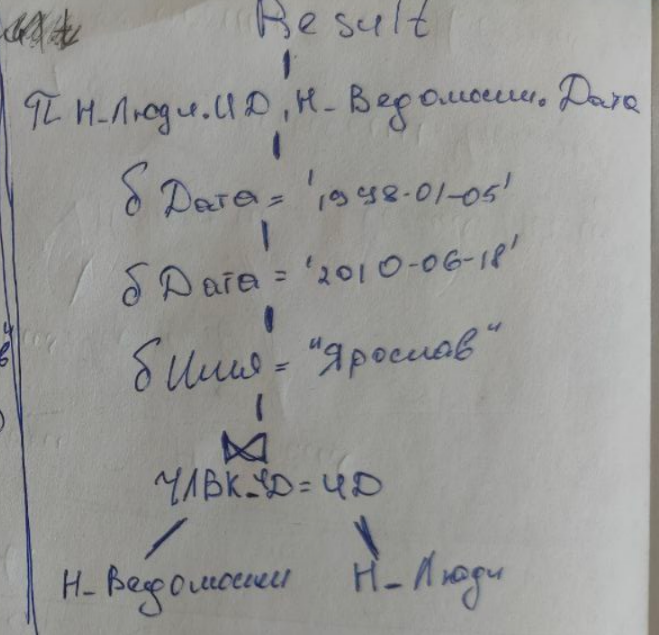 Result
π Н-Люди.ИД, Н-Ведомости.Дата
б Дата = '1998-01-05'
б Дата = '2010-06-18'
б Имя = "Ярослав"
⋈
ЧЛВК_ИД = ИД
Н-Ведомости Н-Люди